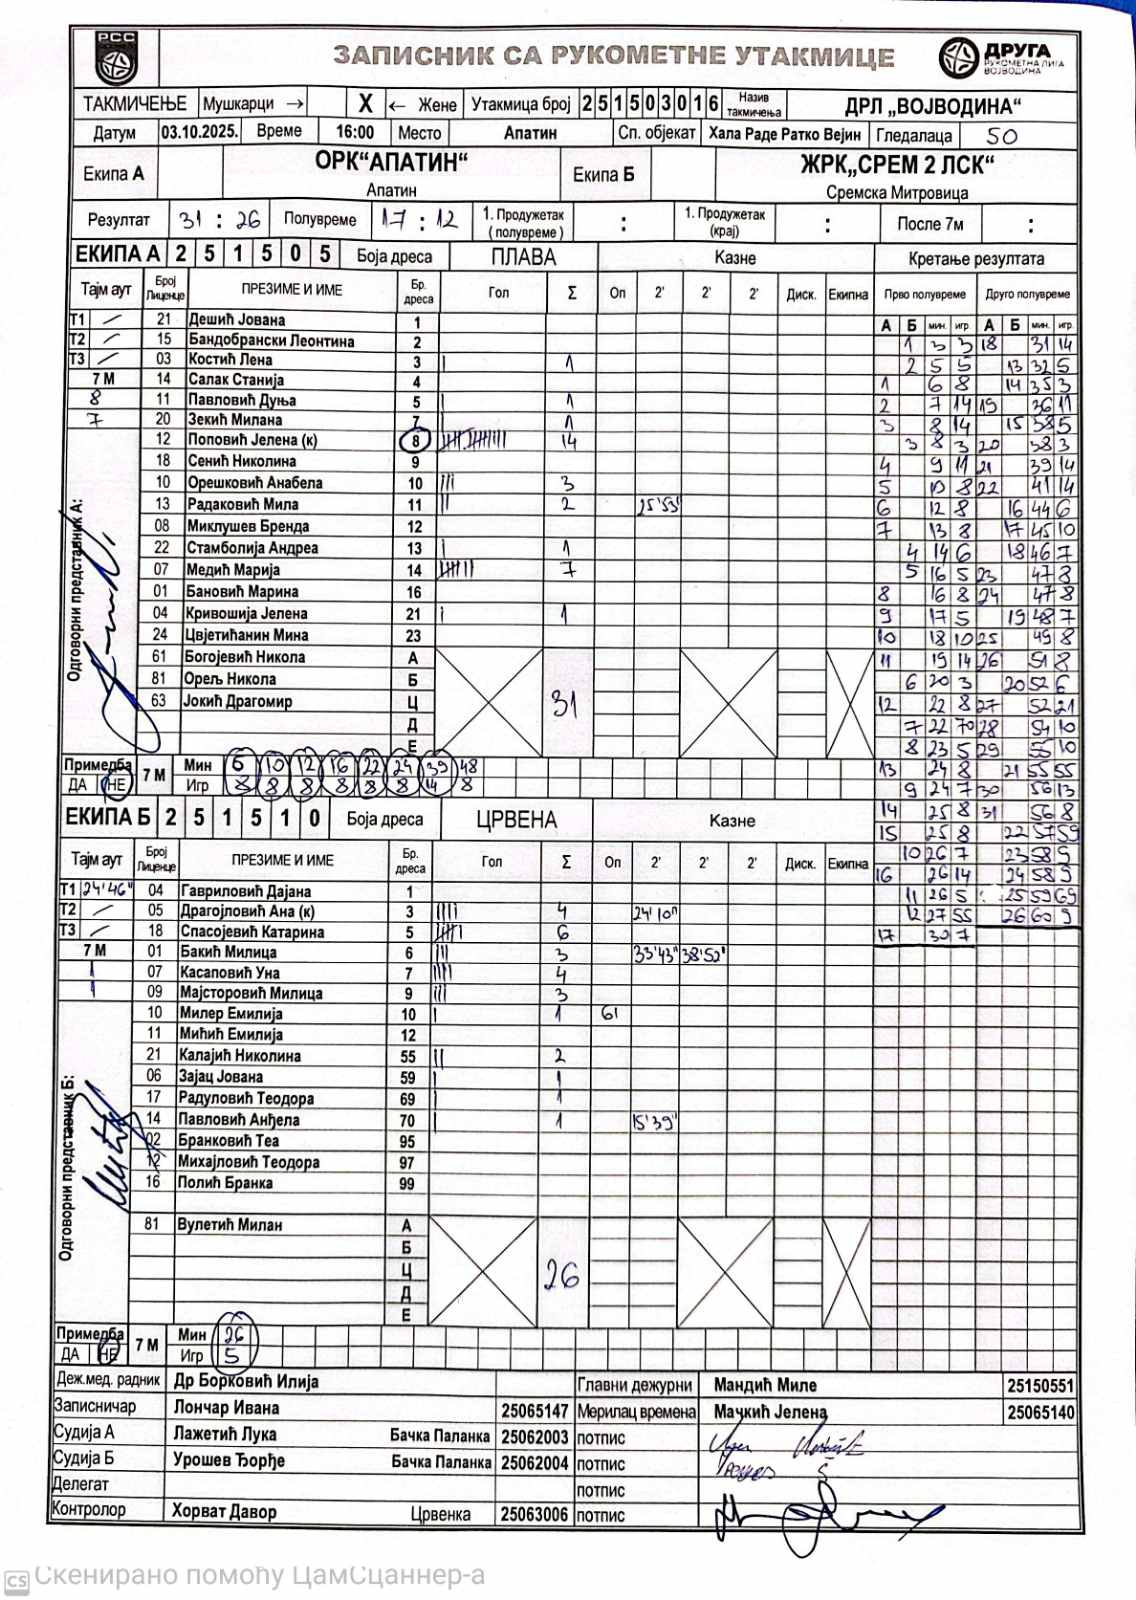 РСС
ЗАПИСНИК СА РУКОМЕТНЕ УТАКМИЦЕ
ДРУГА
РУКОМЕТНА ЛИГА
ВОЈВОДИНА
ТАКМИЧЕЊЕ Мушкарци → X ← Жене Утакмица број 2 5 1 5 0 3 0 1 6 Назив такмичења ДРЛ „ВОЈВОДИНА“
Датум 03.10.2025. Време 16:00 Место Апатин Сп. објекат Хала Раде Ратко Вејин Гледалаца 50
Екипа А ОРК“АПАТИН“ Апатин Екипа Б ЖРК„СРЕМ 2 ЛСК“ Сремска Митровица
Резултат 31 : 26 Полувреме 17 : 12 1. Продужетак ( полувреме ) : 1. Продужетак (крај) : После 7м :
ЕКИПА А 2 5 1 5 0 5 Боја дреса ПЛАВА Казне Кретање резултата
Тајм аут Број Лиценце ПРЕЗИМЕ И ИМЕ Бр. дреса Гол Σ Оп 2' 2' 2' Диск. Екипна Прво полувреме Друго полувреме
А Б мин. игр. А Б мин. игр.
Т1 21 Дешић Јована 1
Т2 15 Бандобрански Леонтина 2
Т3 03 Костић Лена 3 1
7 М 14 Салак Станија 4
8 11 Павловић Дуња 5 1
7 20 Зекић Милана 7 1
12 Поповић Јелена (к) 8 14
18 Сенић Николина 9
10 Орешковић Анабела 10 3
13 Радаковић Мила 11 2 25'53"
08 Миклушев Бренда 12
22 Стамболија Андреа 13 1
07 Медић Марија 14 7
01 Бановић Марина 16
04 Кривошија Јелена 21 1
24 Цвјетићанин Мина 23
61 Богојевић Никола А
81 Орељ Никола Б
63 Јокић Драгомир Ц
Д
Е
31
Одговорни представник А:
1 3 3 18 31 14
2 5 5 13 32 5
1 6 8 14 35 3
2 7 14 19 36 11
3 8 14 15 38 5
3 8 3 20 38 3
4 9 11 21 39 14
5 10 8 22 41 14
6 12 8 16 44 6
7 13 8 17 45 10
4 14 6 18 46 7
5 16 5 23 47 8
8 16 8 24 47 8
9 17 5 19 48 7
10 18 10 25 49 8
11 19 14 26 51 8
6 20 3 20 52 6
12 22 8 27 52 21
7 22 70 28 54 10
8 23 5 29 55 10
13 24 8 21 55 55
9 24 7 30 56 13
14 25 8 31 56 8
15 25 8 22 57 59
10 26 7 23 58 9
16 26 14 24 58 9
11 26 5 25 59 69
12 27 55 26 60 9
17 30 7
Примедба 7 М Мин 6 10 12 16 22 24 39 48
ДА НЕ Игр 8 8 8 8 8 8 14 8
ЕКИПА Б 2 5 1 5 1 0 Боја дреса ЦРВЕНА Казне
Тајм аут Број Лиценце ПРЕЗИМЕ И ИМЕ Бр. дреса Гол Σ Оп 2' 2' 2' Диск. Екипна
Т1 24'46" 04 Гавриловић Дајана 1
Т2 05 Драгојловић Ана (к) 3 4 24'10"
Т3 18 Спасојевић Катарина 5 6
7 М 01 Бакић Милица 6 3 33'43" 38'52"
1 07 Касаповић Уна 7 4
1 09 Мајсторовић Милица 9 3
10 Милер Емилија 10 1 61
11 Мићић Емилија 12
21 Калајић Николина 55 2
06 Зајац Јована 59 1
17 Радуловић Теодора 69 1
14 Павловић Анђела 70 1 15'39"
02 Бранковић Теа 95
12 Михајловић Теодора 97
16 Полић Бранка 99
81 Вулетић Милан А
Б
Ц
Д
Е
26
Одговорни представник Б:
Примедба 7 М Мин 26
ДА НЕ Игр 5
Деж.мед. радник Др Борковић Илија Главни дежурни Мандић Миле 25150551
Записничар Лончар Ивана 25065147 Мерилац времена Мачкић Јелена 25065140
Судија А Лажетић Лука Бачка Паланка 25062003 потпис
Судија Б Урошев Ђорђе Бачка Паланка 25062004 потпис
Делегат потпис
Контролор Хорват Давор Црвенка 25063006 потпис
CS Скенирано помоћу ЦамСцаннер-а